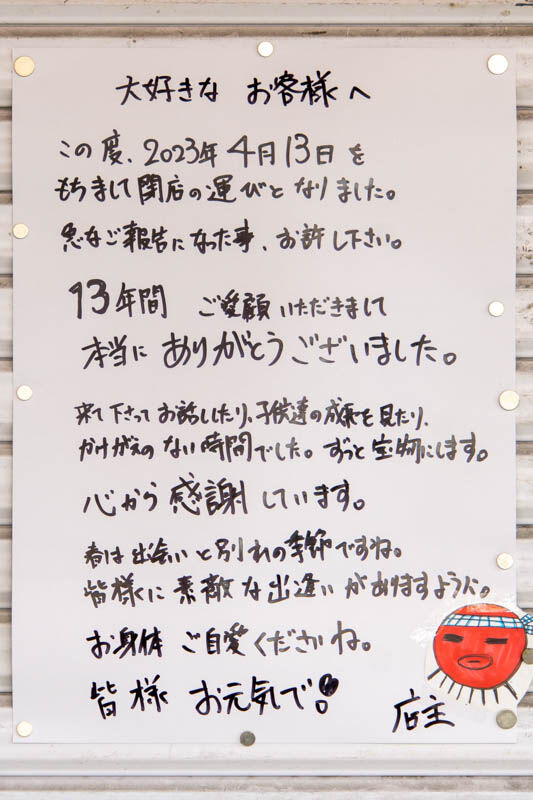 大好きな お客様へ
この度、2023年4月13日を
もちまして閉店の運びとなりました。
急なご報告になった事、お許し下さい。
13年間 ご愛顧いただきまして
本当に ありがとうございました。
来て下さってお話ししたり、子供達の成長を見たり、
かけがえのない時間でした。ずっと宝物にします。
心から感謝しています。
春は出会いと別れの季節ですね。
皆様に素敵な出逢いがありますように。
お身体 ご自愛くださいね。
皆様 お元気で!
店主